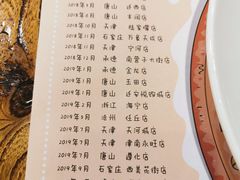 2018年8月 唐山 迁西店
2018年8月 唐山 丰润店
2018年10月 天津
2018年11月 石家庄 万象天成店
2018年12月 天津 宁河店
2018年12月 承德 南营子大街店
2018年12月 承德 金龙店
2019年1月 唐山 玉田店
2019年1月 唐山
2019年2月 浙江 海宁店
2019年5月 沧州 任丘店
2019年7月 天津 天河城店
2019年7月 天津 津南永旺店
2019年7月 唐山 遵化店
2019年9月 石家庄 西美花街店